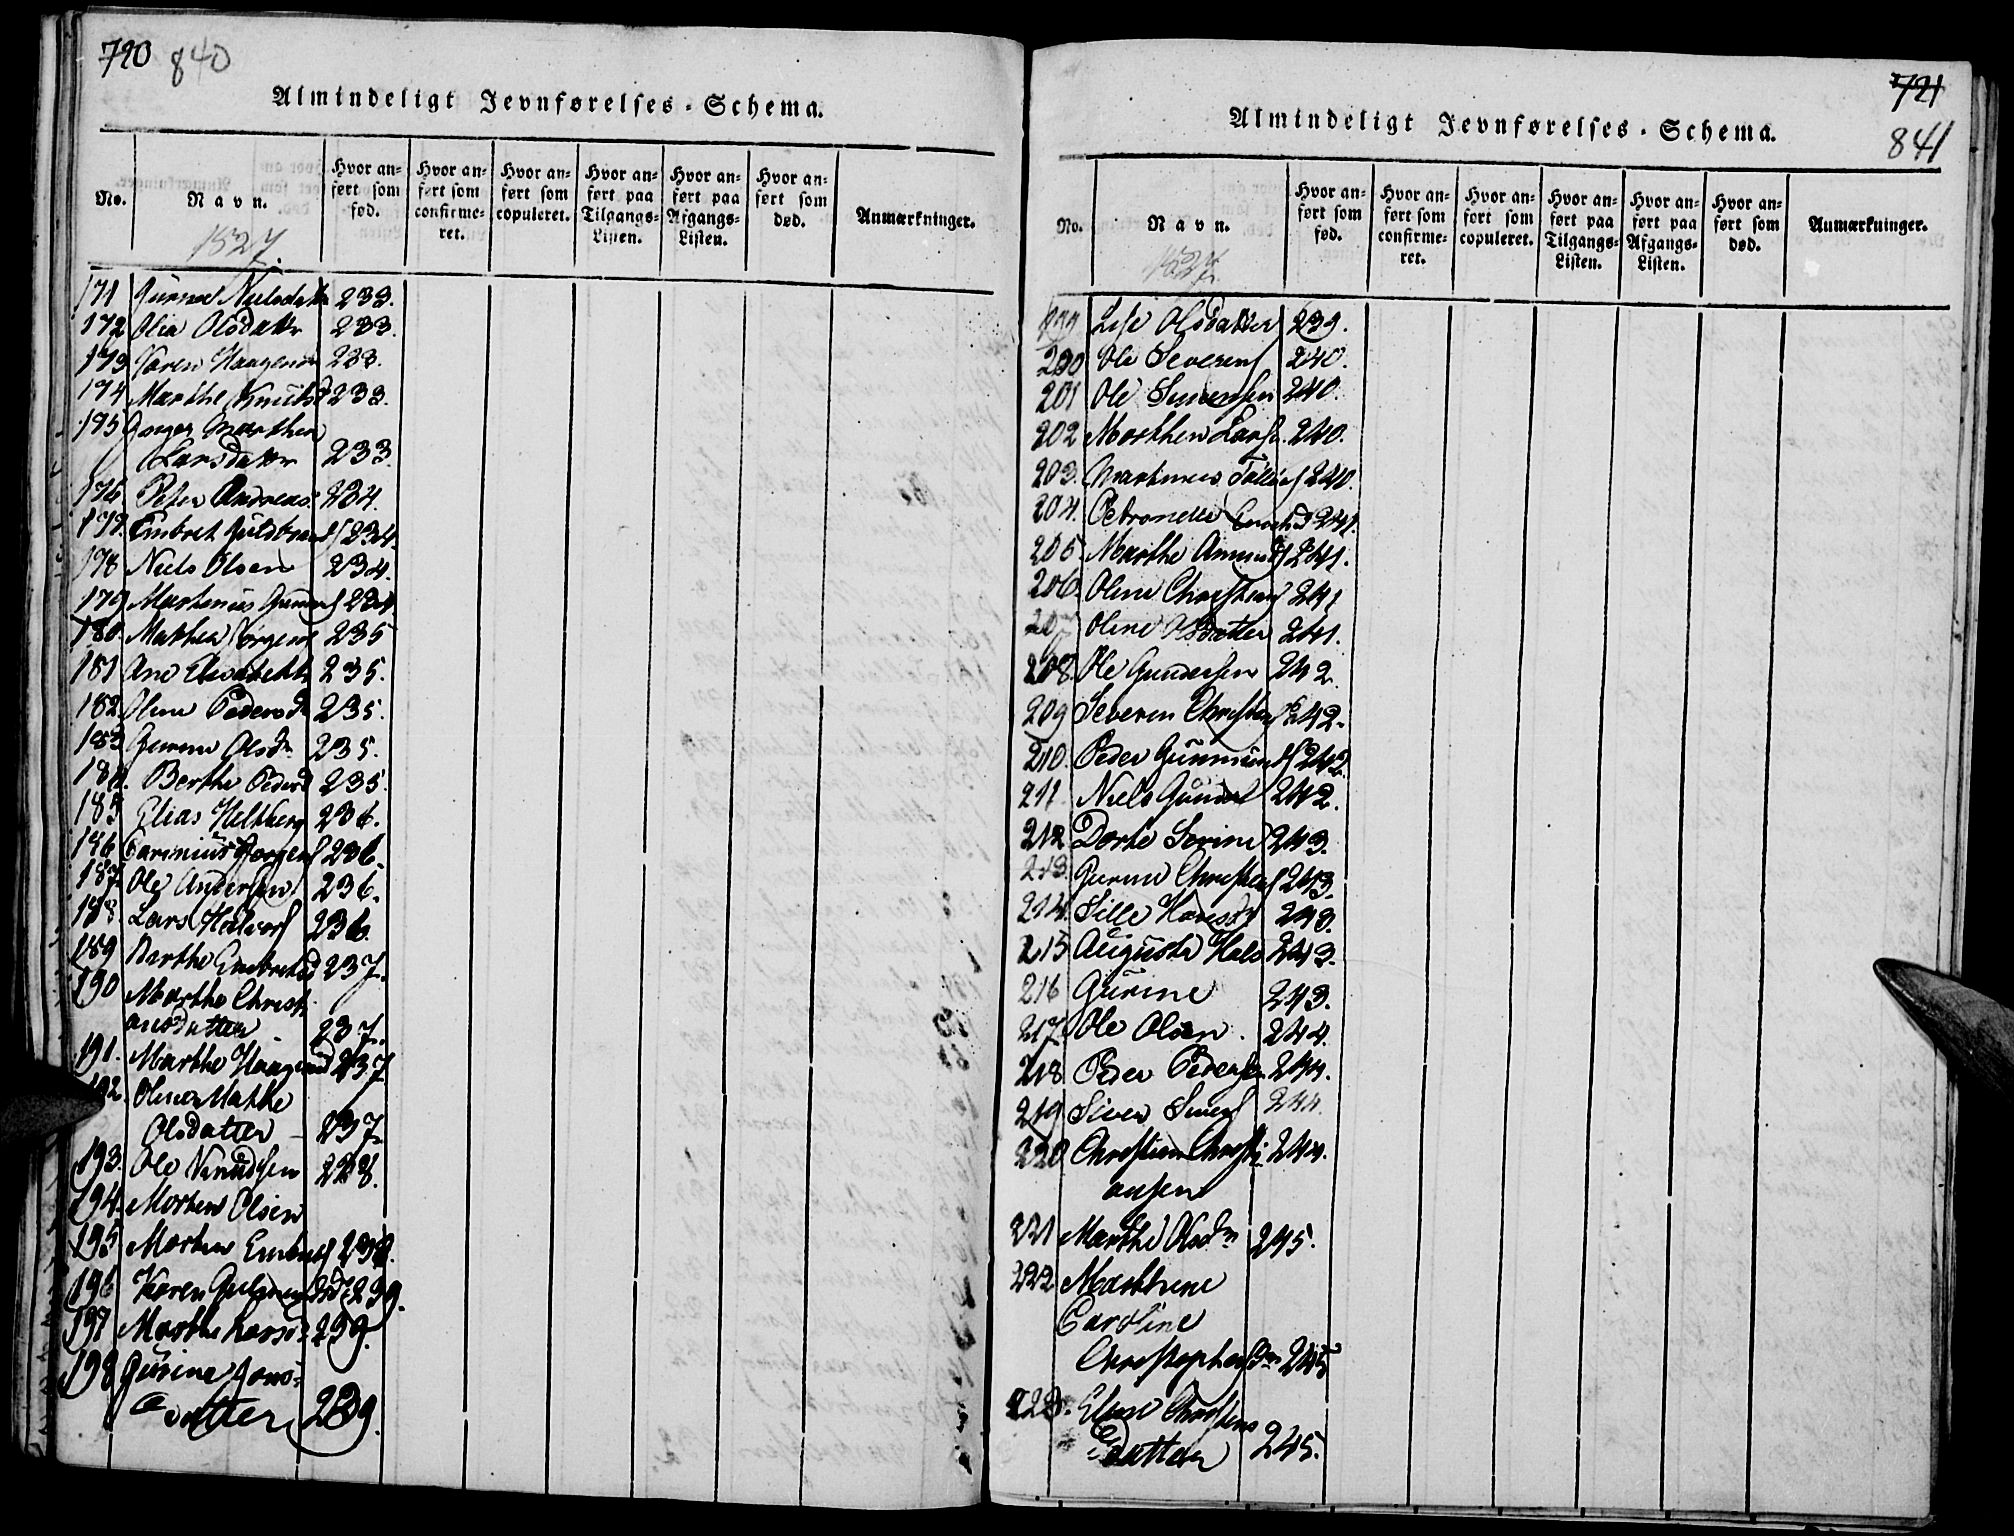 720 840
Almindeligt Jevnførelses-Schema.
No. Navn. Hvor anført som fød. Hvor anført som confirmeret. Hvor anført som copuleret. Hvor anført paa Tilgangs-Listen. Hvor anført paa Afgangs-Listen. Hvor anført som død. Anmærkninger.
1827.
171 Gunnor Nielsdatr 233.
172 Olia Olsdattr 233.
173 Karen Haagens 233.
174 Marthe Knuts 233.
175 Marthea
Larsdattr 233.
176 Peter Andreas: 234.
177. Embret Guldbrands 234.
178 Niels Olsen 234.
179 Martinius 234.
180. Mathea Jørgens 235
181 Ane Elisabeth 235.
182. Oline Pedersd 235.
183 Olsdr 235.
184. Berthe Pedersd 235.
185 Elias Heltberg 236.
186 Jørgens 236.
187. Ole Andersen 236.
188. Lars Halvors 236.
189 Berthe Embretsd 237.
190 Marthe Christi
ansdatter 237.
191. Marthe Haagensd 237
192. Oline Mathe
Olsdatter - 237.
193. Ole Knudsen 228.
194. Morten Olsen
195 Morten Embrets 238.
196 Karen 239.
197 Marthe Larsd. 239.
198 Gurine Jons-
datter 239.
721
841
Almindeligt Jevnførelses-Schema.
No. Navn. Hvor anført som fød. Hvor anført som confirmeret. Hvor anført som copuleret. Hvor anført paa Tilgangs-Listen. Hvor anført paa Afgangs-Listen. Hvor anført som død. Anmærkninger.
1827.
199 Lise Olsdatter 239.
200 Ole Severens 240.
201 Ole Simensen 240.
202 Marthen Lars. 240.
203. Martinus 240.
204. Petronelle 241.
205. Marthe Amunds 241.
206. Oline Christians 241
207 Oline Olsdatter 241.
208. Ole Gundersen 242.
209 Severin Christians 242.
210. Peder Gunmunds 242.
211 Niels Gunders 242.
212 Dorte Serine 243.
213. Gurine Christians 243.
214. Sille Hansdr 243.
215 Augusta Hals 243.
216 Gurine 243.
217. Ole Olsen. 244.
218 Peder Pedersen 244.
219 Siver Simens 244.
220 Christian Christi- 244.
ansen
221 Marthe Olsdr 245.
222 Marthine
Caroline
Christophersdr 245
223. Elene Christens
datter 245.